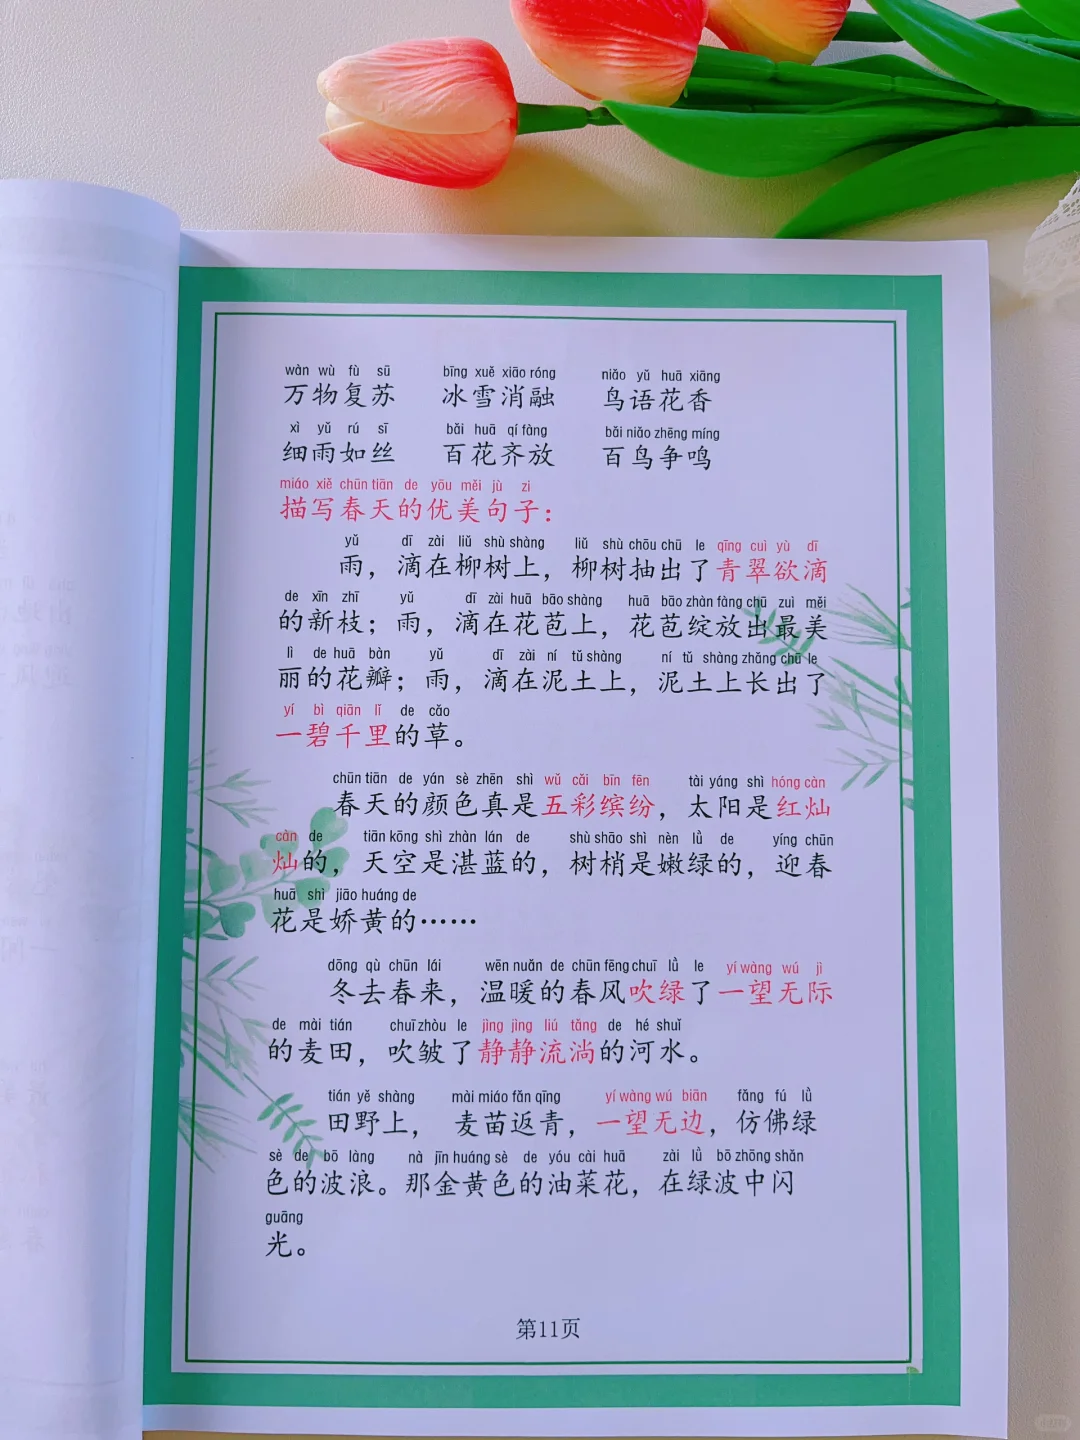 wàn wù fù sū bīng xuě xiāo róng niǎo yǔ huā xiāng
万物复苏 冰雪消融 鸟语花香
xì yǔ rú sī bǎi huā qí fàng bǎi niǎo zhēng míng
细雨如丝 百花齐放 百鸟争鸣
miáo xiě chūn tiān de yōu měi jù zi
描写春天的优美句子：
yǔ dī zài liǔ shù shàng liǔ shù chōu chū le qīng cuì yù dī
雨，滴在柳树上，柳树抽出了青翠欲滴
de xīn zhī yǔ dī zài huā bāo shàng huā bāo zhàn fàng chū zuì měi
的新枝；雨，滴在花苞上，花苞绽放出最美
lì de huā bàn yǔ dī zài ní tǔ shàng ní tǔ shàng zhǎng chū le
丽的花瓣；雨，滴在泥土上，泥土上长出了
yí bì qiān lǐ de cǎo
一碧千里的草。
chūn tiān de yán sè zhēn shì wǔ cǎi bīn fēn tài yáng shì hóng càn
春天的颜色真是五彩缤纷，太阳是红灿
càn de tiān kōng shì zhàn lán de shù shāo shì nèn lǜ de yíng chūn
灿的，天空是湛蓝的，树梢是嫩绿的，迎春
huā shì jiāo huáng de
花是娇黄的……
dōng qù chūn lái wēn nuǎn de chūn fēng chuī lǜ le yí wàng wú jì
冬去春来，温暖的春风吹绿了一望无际
de mài tián chuī zhòu le jìng jìng liú tǎng de hé shuǐ
的麦田，吹皱了静静流淌的河水。
tián yě shàng mài miáo fǎn qīng yí wàng wú biān fǎng fú lǜ
田野上，麦苗返青，一望无边，仿佛绿
sè de bō làng nà jīn huáng sè de yóu cài huā zài lǜ bō zhōng shǎn
色的波浪。那金黄色的油菜花，在绿波中闪
guāng
光。
第11页